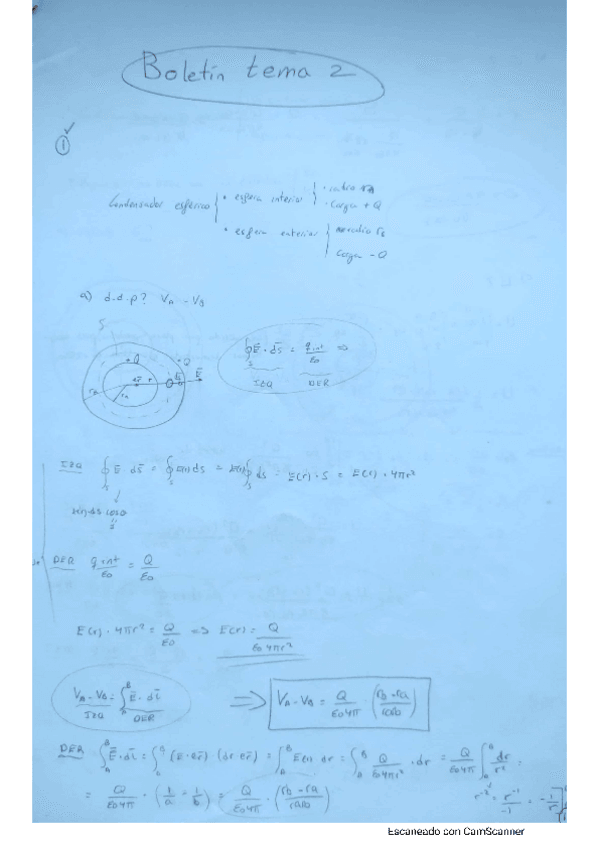 Boletín tema 2
①
Condensador esférico { • esfera interior { • radio ra
• Carga +Q
• esfera exterior { radio rb
Carga -Q
a) d.d.p? VA - VB
S
+Q -Q
∮s E · ds = q int / εo ⇒
IZQ DER
IZQ ∮s E · ds = ∮s E(r) ds = E(r) ∮s ds = E(r) · S = E(r) · 4πr²
DER q int / εo = Q / εo
E(r) · 4πr² = Q / εo ⇒ E(r) = Q / εo4πr²
VA - VB = ∫ E · dl ⇒ VA - VB = Q / εo4π (rb - ra / rarb)
IZQ DER
DER ∫ E · dl = ∫ (E · er) (dr er) = ∫ E(r) dr = ∫ Q / εo4πr² · dr = Q / εo4π ∫ dr / r² =
= Q / εo4π · (1/a - 1/b) = Q / εo4π · (rb - ra / rarb) r⁻² = r⁻¹ / -1 = -1/r
Escaneado con CamScanner